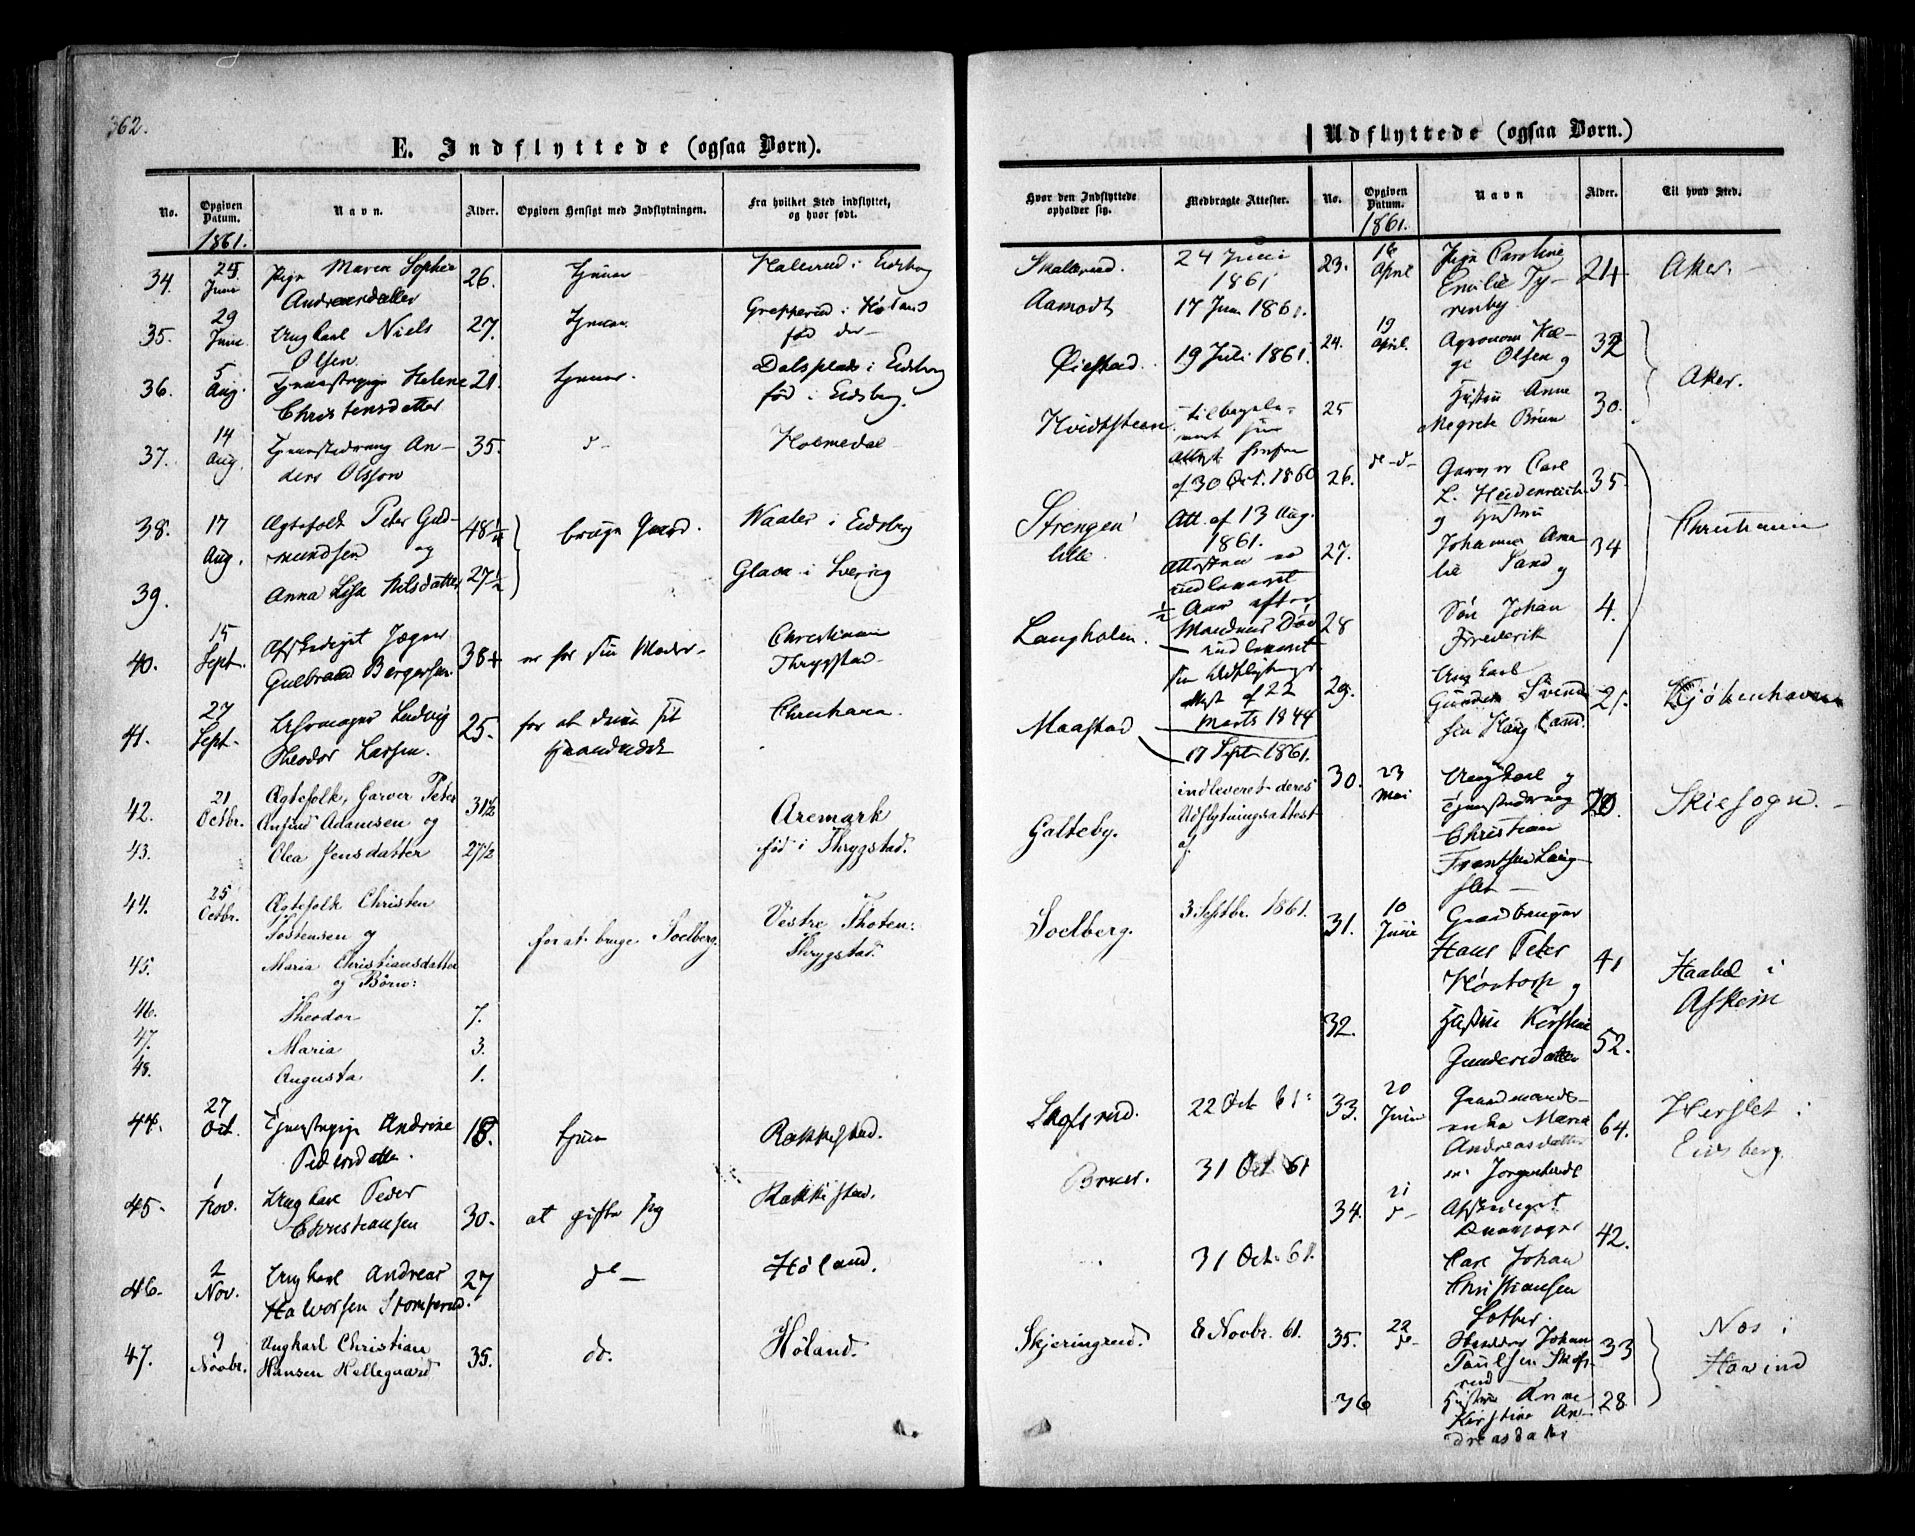 362.
E. Indflyttede (ogsaa Børn).
No.
Opgiven Datum.
Navn.
Alder.
Opgiven Hensigt med Indflytningen.
Fra hvilket Sted indflyttet,
og hvor født.
1861.
34. 25 Juni Pige Maren Sophie 26. tjene Hallerud i Eidsberg
Andreasdatter
35. 29 Juni Ungkarl Niels 27. tjene Høland
Olsen. fød der
36. 5 Aug. Tjenestepige Helene 21. tjene. Dalsplads i Eidsberg
Christensdatter fød i Eidsberg.
37. 14 Aug. Tjenestedreng An- 35. Holmedal
ders Olsson
38. 17 Aug. Ægtefolk Peter Gud- 48 bruge Gaard. Naaler i Eidsberg
mundsen og
39. Anna Lisa Nilsdatter 27½ Glava i Sverig
40. 15 Sept. Afskediget Jæger 38 er for sin Moder Christiania
Gulbrand Bergersen Thrygstad
41. 27 Sept. Theodor Larsen. 25. for at drive sit Christiania.
Haandværk
42. 21 Octbr. Ægtefolk, Garver Peter 31½ Aremark
Adamsen og
43. Olea Jensdatter 27½ fød i Thrygstad.
44. 25 Octbr. Ægtefolk Christen Vestre Thoten:
Tostensen og for at bruge Soelberg. Thrygstad.
45. Maria Christiansdatter
og Børn:
46. Theodor 7.
47. Maria 3.
48. Augusta 1.
44. 27 Oct. Tjenestepige Andrine 18. tjene Rakkestad.
Pedersdatter.
45. 1 Nov. Ungkarl Peder 30. at gifte sig Rakkestad.
Christiansen
46. 2 Nov. Ungkarl Andreas 27 do Høland.
Halvorsen Stomperud.
47. 9 Novbr. Ungkarl Christian 35. do. Høland.
Hansen Hellegaard
Hvor den Indflyttede
opholder sig.
Medbragte Attester.
Skallerud. 24 Juni
1861
Aamodt 17 Juni 1861.
Øiestad. 19 Juli 1861.
Kvidtsteen. tilbagele-
veret sin
Attest
af 30 Oct. 1860
Strengen Att. af 13 Aug.
lille. 1861.
Attesten
indleveret
½ Aar efter
Langholm. Mandens Død
indleveret
sin Udflytnings
attest af 22
Marts 1844
Maastad 17 Sept 1861.
indleveret deres
Galteby. Udflytningsattest
af
Soelberg. 3 Septbr. 1861.
Skofsrud. 22 Oct 61.
31 Oct 61
31 Oct. 61.
Skjeringrud. 8 Novbr. 61.
Udflyttede (ogsaa Børn.)
No.
Opgiven Datum.
Navn
Alder.
Til hvad Sted.
1861.
23. 18 April Pige Caroline 24 Aker.
Emilie Ty-
renby
24. 19 April. Agronom Hel- 32
ge Olsen og Aker.
25 Hustru Anne 30.
Megrete Bruun
26. d-d- Garver Carl 35
L. Heidenreich
og Hustru
27. Johanne Ama 34 Christiania
lie Sand og
28 Søn Johan 4.
Frederik
29. Ungkarl
Gunder Svend 21. Kjøbenhavn
sen Haug Cand.
30. 23 Mai Ungkarl og 20. Skiesogn.
Tjenestedreng
Christian
Frantsen Lang-
slet
31. 10 Juni Gaardbruger
Hans Peter 41 Haabøl i
Kortorp og Askim
32. Hustru Kirstine
Gundersdatter 52.
33. 20 Juni Gaardmands-
enke Maria 64. Herslet i
Andreasdatter Eidsberg.
34. 21 d- Afskediget
42.
Carl Johan
Christiansen
35. 22 d- Johan 33 Nos i
Paulsen Skofs- Hovind
rud
36 Hustru Anne 28
Kirstine An-
dreasdatter